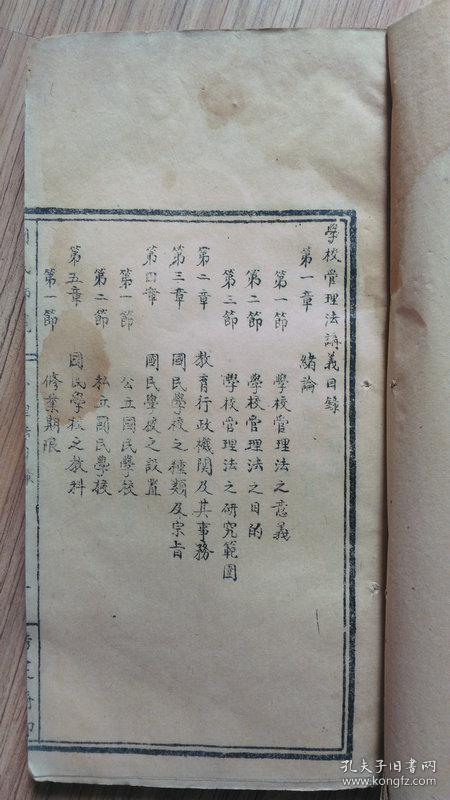 學校管理法講義目錄
第一章 緒論
第一節 學校管理法之意義
第二節 學校管理法之目的
第三節 學校管理法之研究範圍
第二章 教育行政機関及其事務
第三章 國民學校之種類及宗旨
第四章 國民學校之設置
第一節 公立國民學校
第二節 私立國民學校
第五章 國民學校之教科
第一節 修業期限
孔夫子旧书网
www.kongfz.com